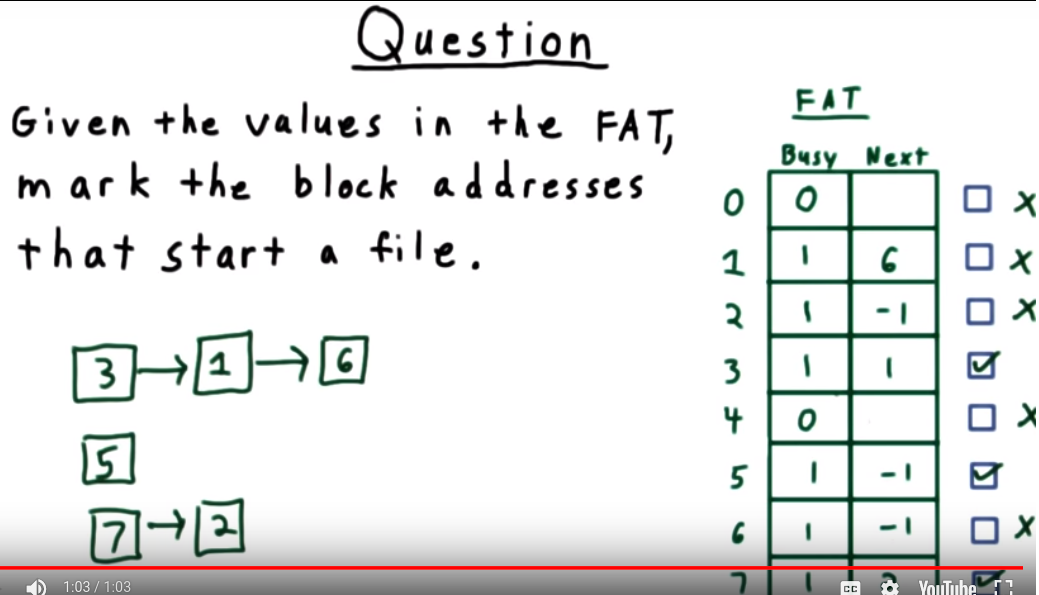 Question
Given the values in the FAT,
mark the block addresses
that start a file.
3 → 1 → 6
5
7 → 2
FAT
Busy Next
0 0 X
1 1 6 X
2 1 -1 X
3 1 1 ✓
4 0 X
5 1 -1 ✓
6 1 -1 X
7 1 ✓
1:03 / 1:03
CC
YouTube